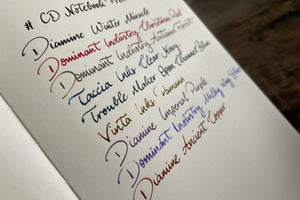 # CD Notebook
Diamine Winter Miracle
Dominant Industry Christmas Red
Dominant Industry Autumn Forest
Taccia Inks Navy
Trouble Maker Open Channel Blue
Vinta Inks
Diamine Imperial Purple
Dominant Industry Milky Way
Diamine Ancient Copper